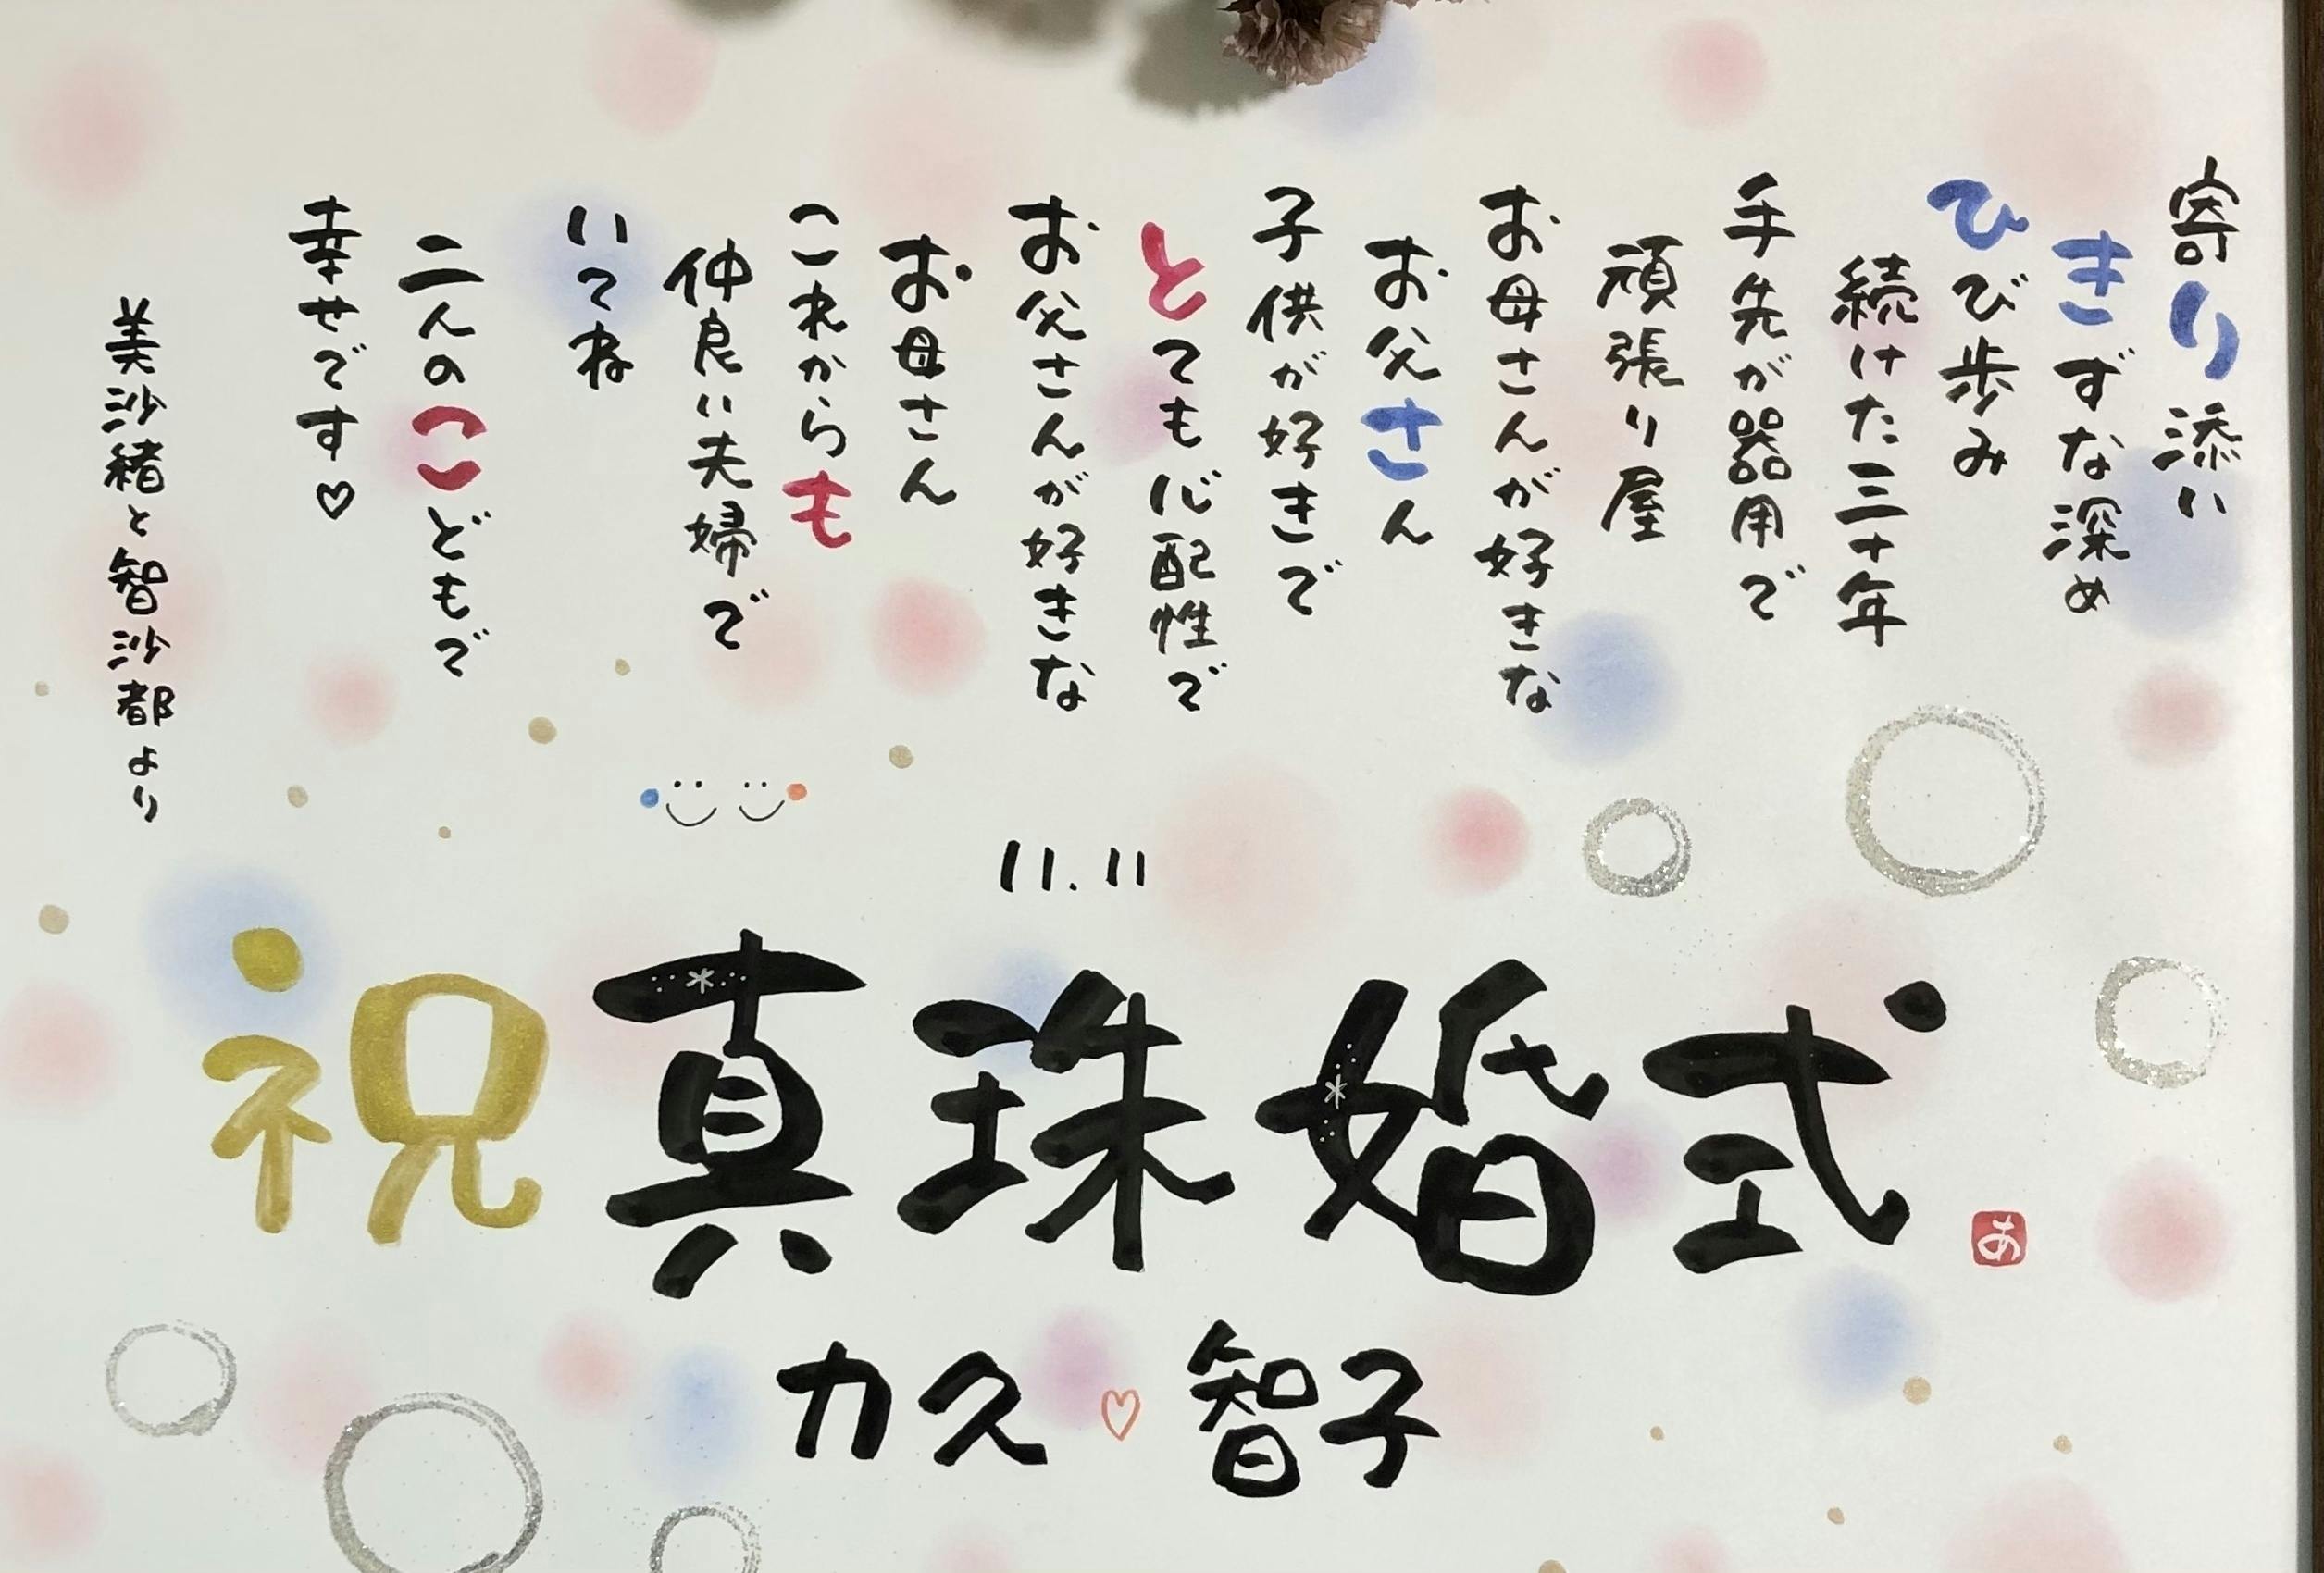 寄り添い
きずな深め
ひび歩み
続けた三十年
手先が器用で
頑張り屋
お母さんが好きな
お父さん
子供が好きで
とても心配性で
お父さんが好きな
お母さん
これからも
仲良い夫婦で
いてね
二人のこどもで
幸せです♡
美沙緒と智沙都より
11.11
祝真珠婚式
あ
力久♡智子